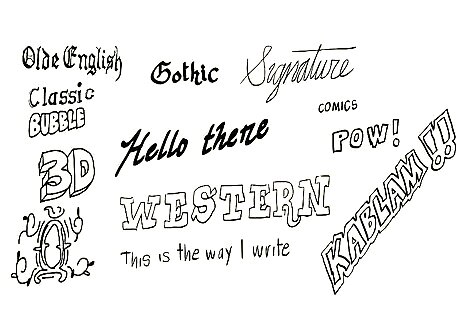 Olde English
Gothic
Signature
Classic
BUBBLE
COMICS
Hello there
POW!
3D
WESTERN
KABLAM!!
This is the way I write